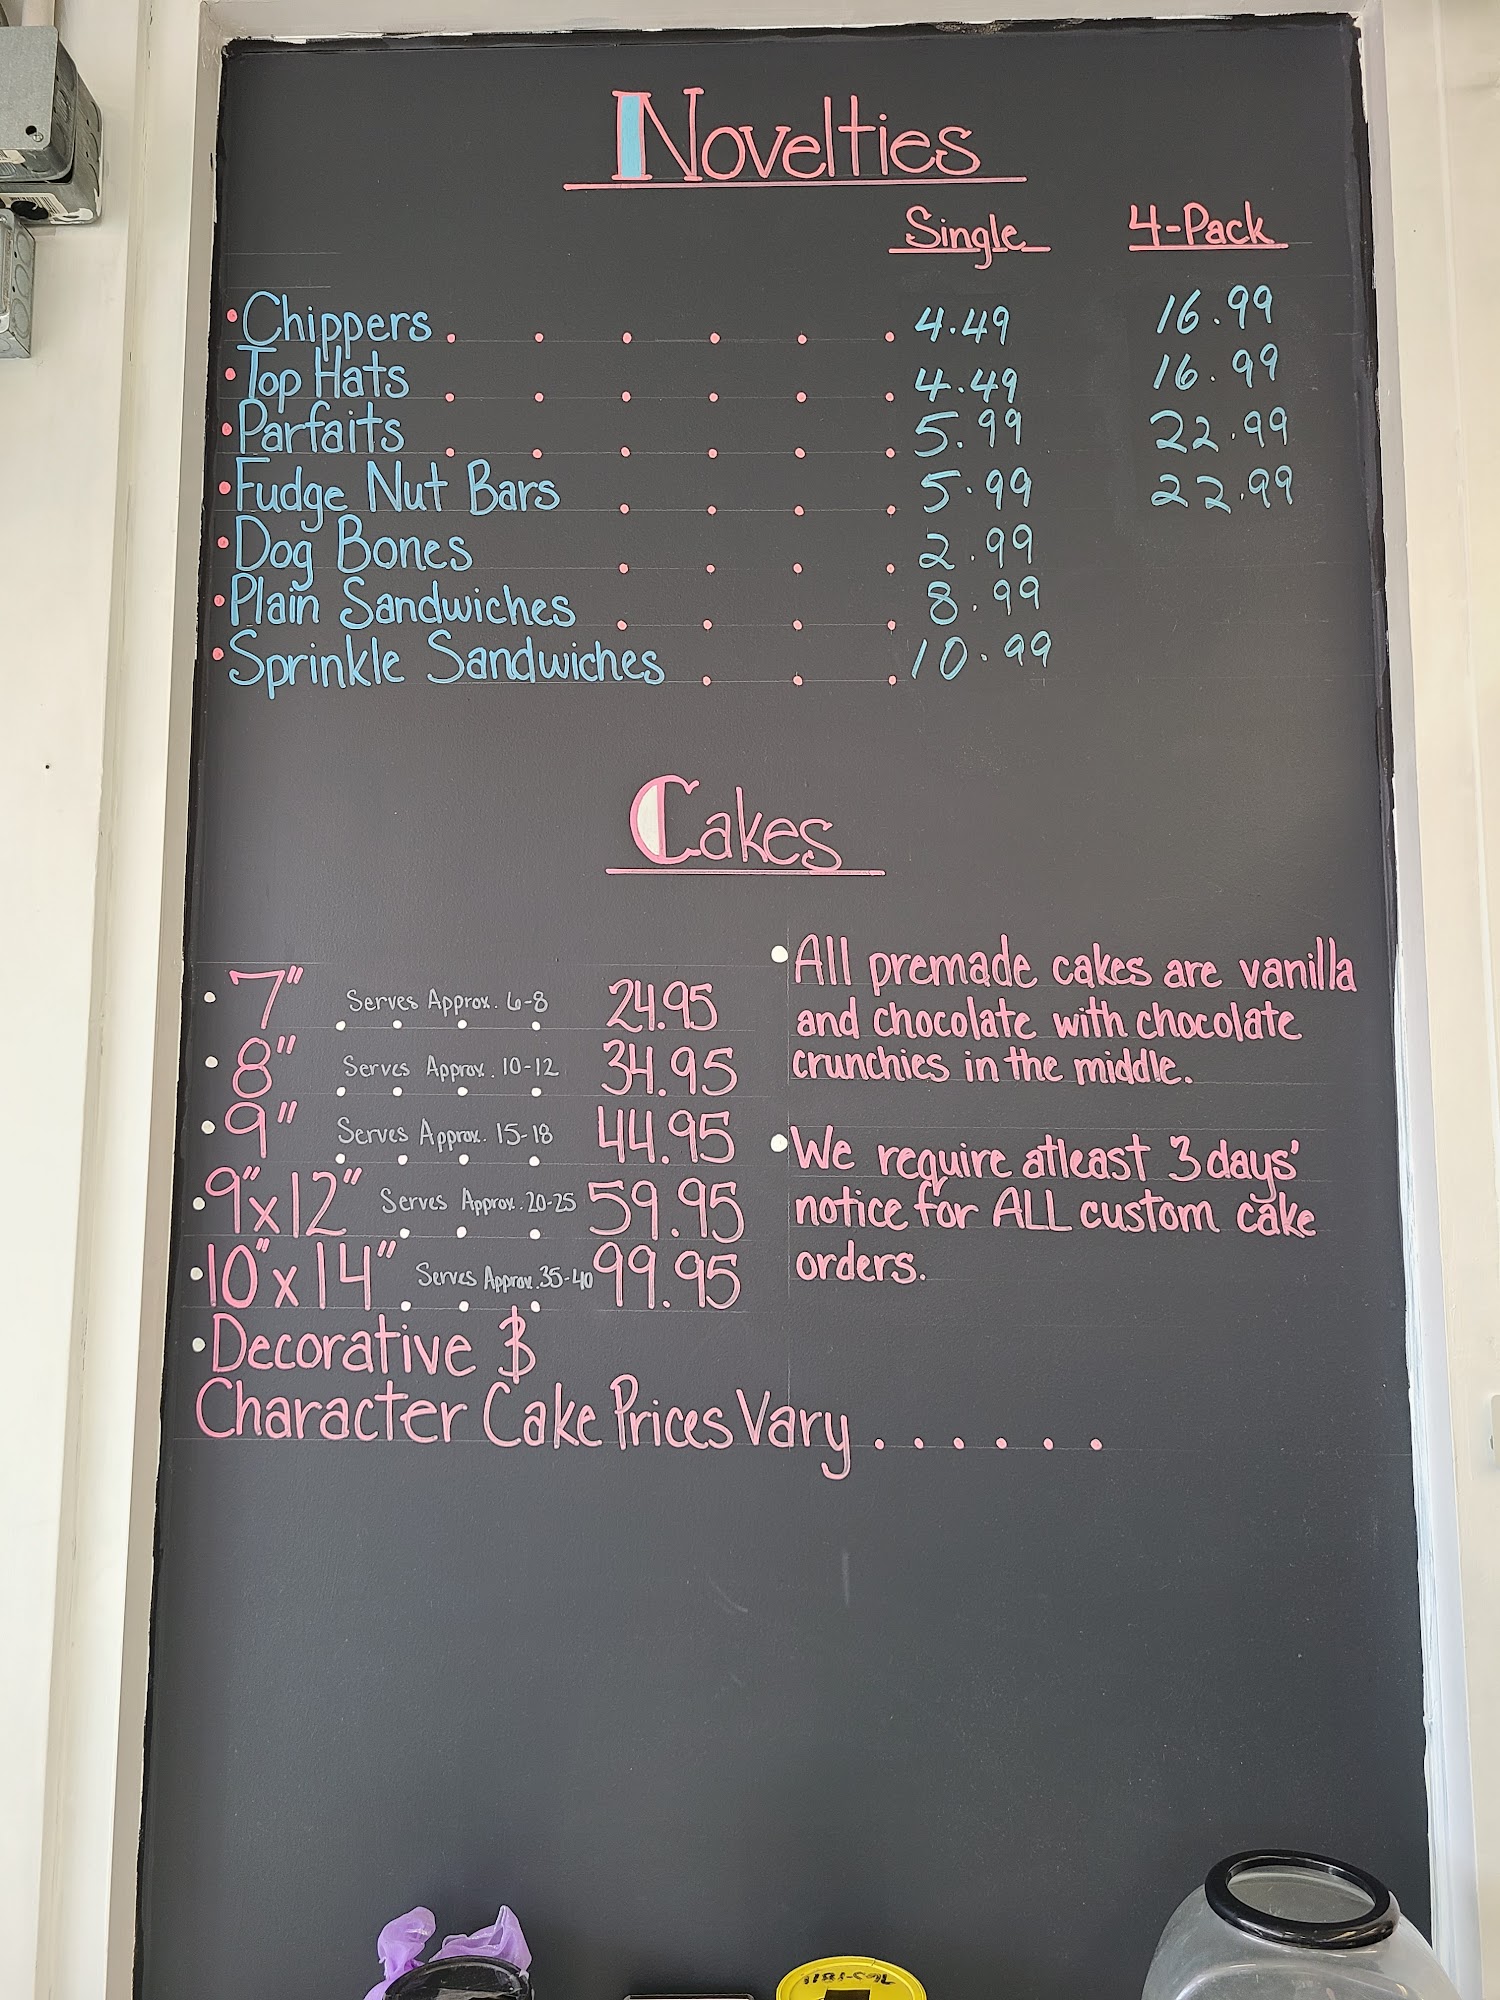 Novelties
Single 4-Pack
• Chippers . . . . . . 4.49 16.99
• Top Hats . . . . . . 4.49 16.99
• Parfaits . . . . . . 5.99 22.99
• Fudge Nut Bars . . . . 5.99 22.99
• Dog Bones . . . . 2.99
• Plain Sandwiches . . . . 8.99
• Sprinkle Sandwiches . . . 10.99
Cakes
• 7" Serves Approx. 6-8 . . . . 24.95
• 8" Serves Approx. 10-12 . . . . 34.95
• 9" Serves Approx. 15-18 . . . . 44.95
• 9"x12" Serves Approx. 20-25 . . . 59.95
• 10"x14" Serves Approx. 35-40 . . . 99.95
• Decorative &
Character Cake Prices Vary . . . . . .
• All premade cakes are vanilla
and chocolate with chocolate
crunchies in the middle.
• We require atleast 3 days'
notice for ALL custom cake
orders.